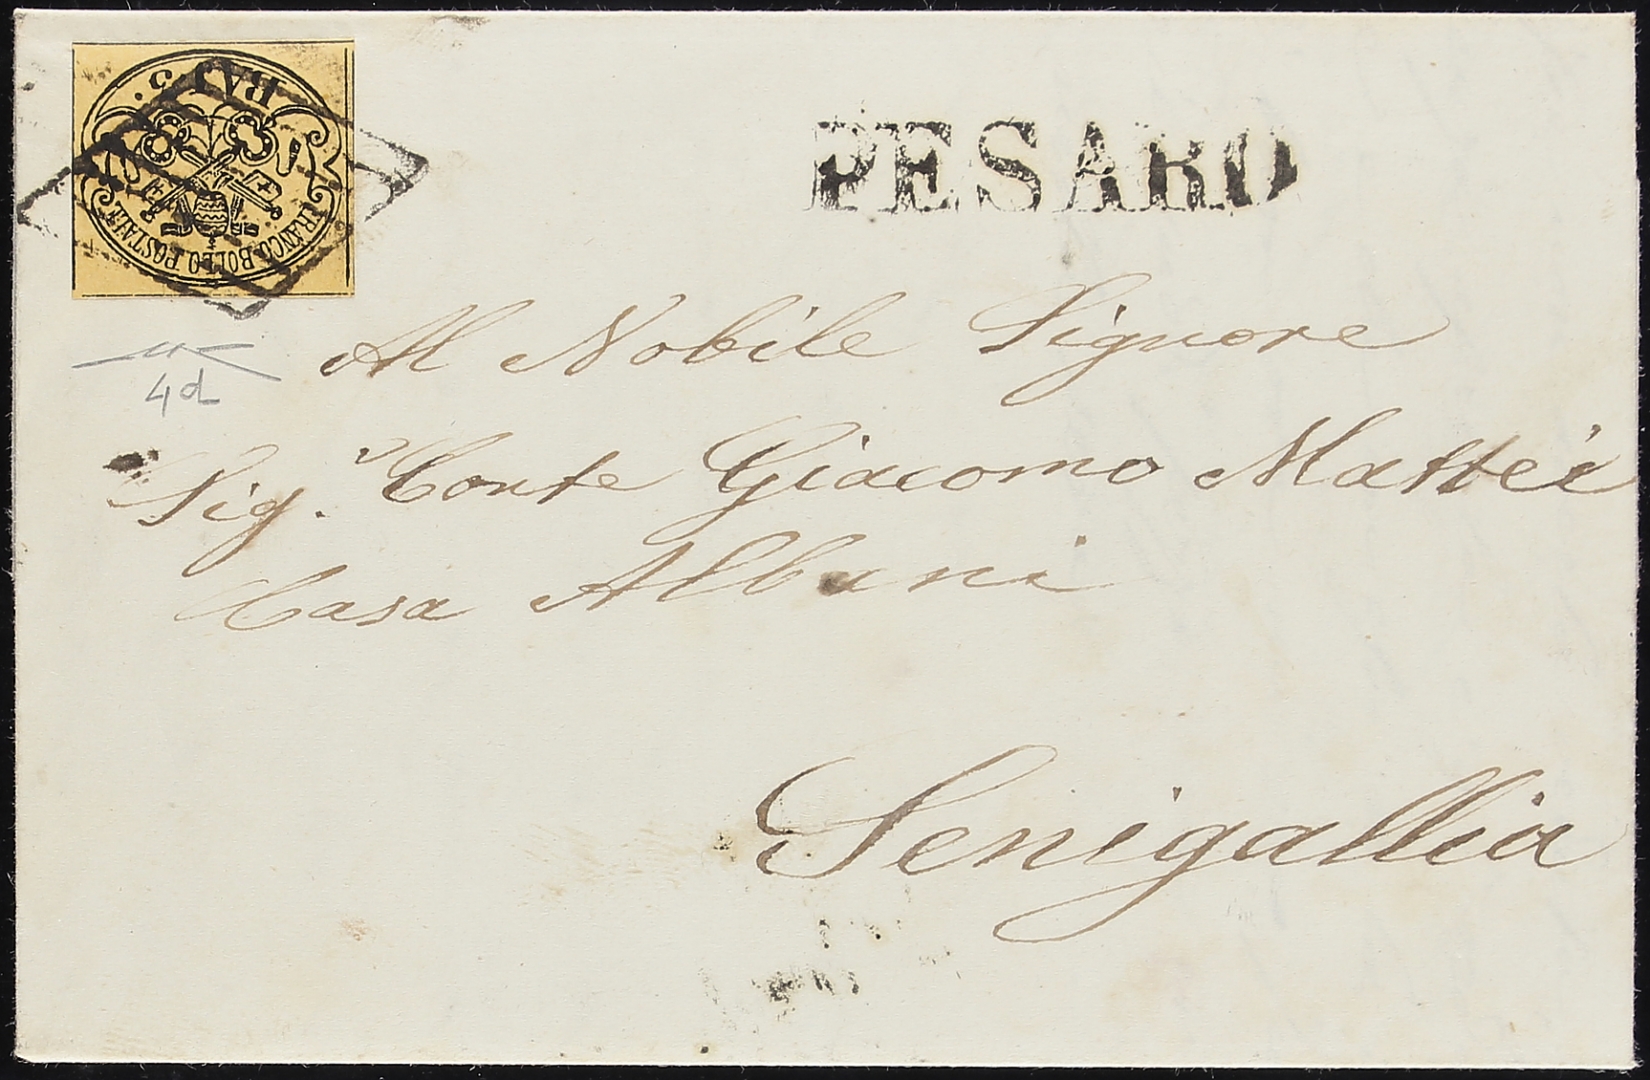 BAJ. 3.
FRANCO BOLLO POSTALE
PESARO
Al Nobile Signore
4d
Sig.r Conte Giacomo Mattei
Casa Albani
Senigallia